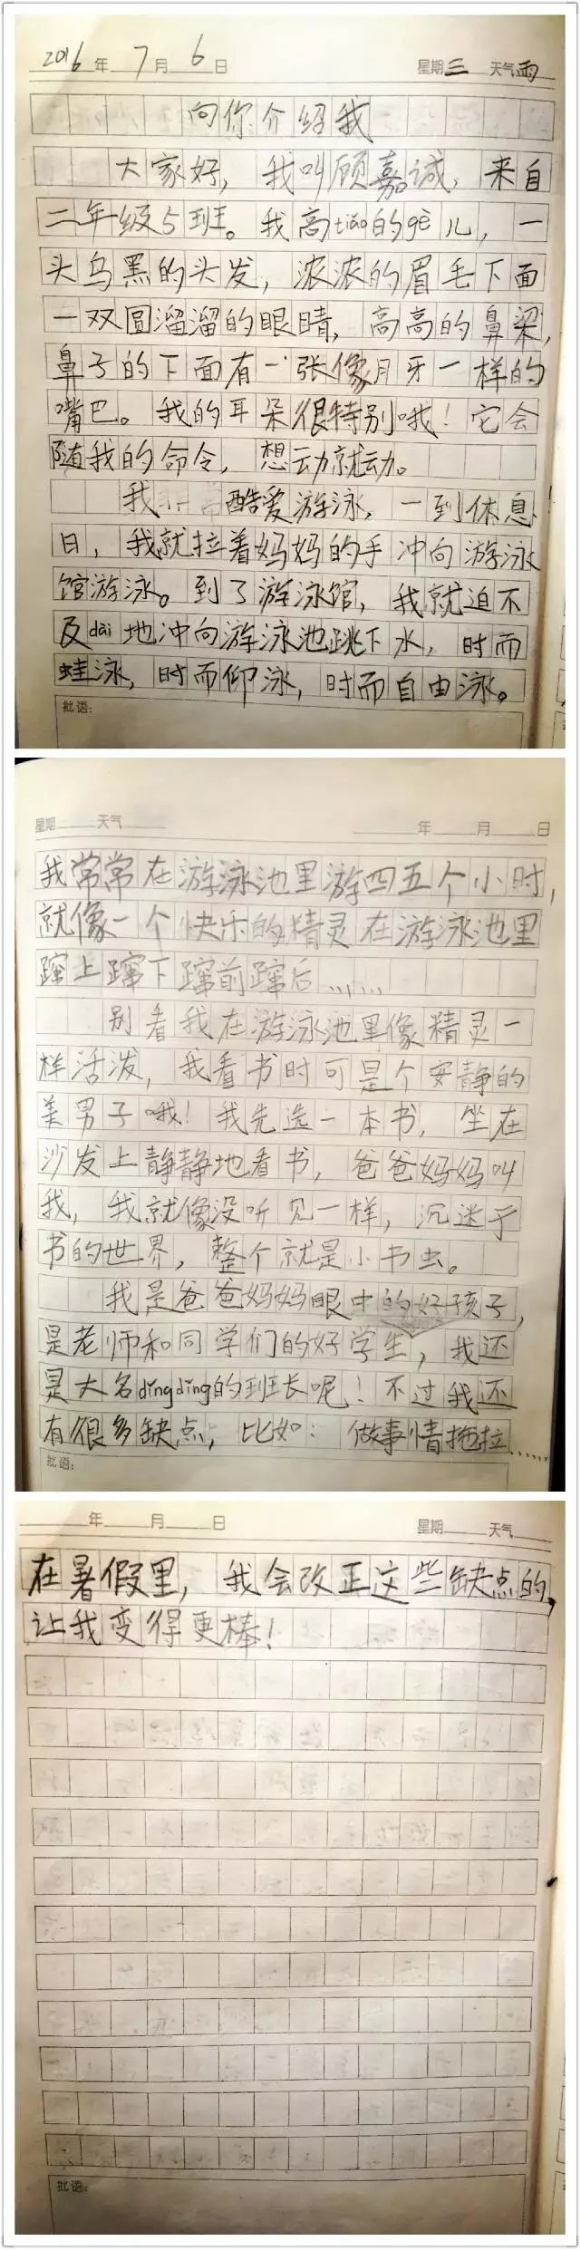 2016年 7月 6日 星期三 天气雨
向你介绍我
大家好，我叫顾嘉诚，来自
二年级5班。我高tiāo的gè儿，一
头乌黑的头发，浓浓的眉毛下面
一双圆溜溜的眼睛，高高的鼻梁，
鼻子的下面有一张像月牙一样的
嘴巴。我的耳朵很特别哦！它会
随我的命令，想动就动。
我酷爱游泳，一到休息
日，我就拉着妈妈的手冲向游泳
馆游泳。到了游泳馆，我就迫不
及dài地冲向游泳池跳下水，时而
蛙泳，时而仰泳，时而自由泳。
批语：
星期 天气 年 月 日
我常常在游泳池里游四五个小时，
就像一个快乐的精灵在游泳池里
蹿上蹿下蹿前蹿后……
别看我在游泳池里像精灵一
样活泼，我看书时可是个安静的
美男子哦！我先选一本书，坐在
沙发上静静地看书，爸爸妈妈叫
我，我就像没听见一样，沉迷于
书的世界，整个就是小书虫。
我是爸爸妈妈眼中的好孩子，
是老师和同学们的好学生，我还
是大名dǐngdǐng的班长呢！不过我还
有很多缺点，比如：做事情拖拉……
批语：
年 月 日 星期 天气
在暑假里，我会改正这些缺点的，
让我变得更棒！
批语：